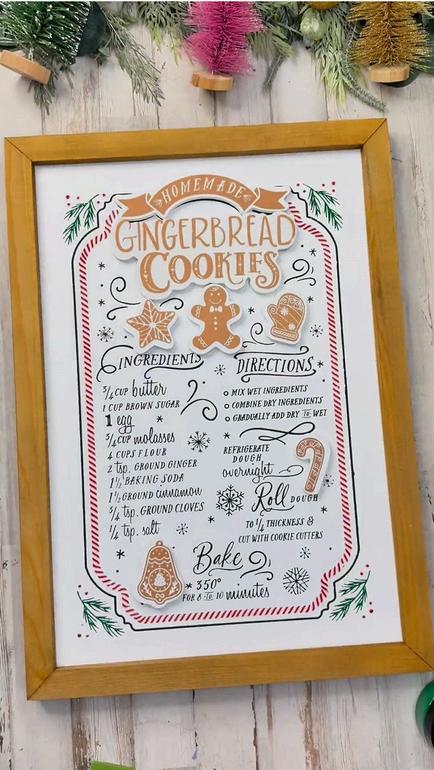 HOMEMADE
GINGERBREAD
COOKIES
INGREDIENTS
3/4 CUP butter
1 CUP BROWN SUGAR
1 egg
3/4 CUP molasses
4 CUPS FLOUR
2 tsp. GROUND GINGER
1 1/2 BAKING SODA
1 1/2 GROUND cinnamon
3/4 tsp. GROUND CLOVES
1/4 tsp. salt
DIRECTIONS
MIX WET INGREDIENTS
COMBINE DRY INGREDIENTS
GRADUALLY ADD DRY TO WET
REFRIGERATE
DOUGH
overnight
Roll DOUGH
TO 1/4 THICKNESS &
CUT WITH COOKIE CUTTERS
Bake
350°
FOR 8 TO 10 minutes